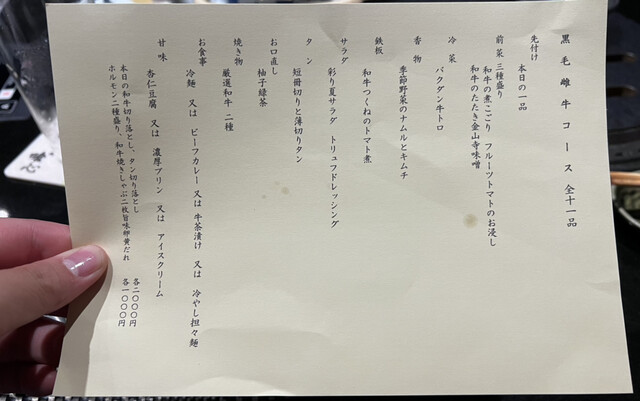 黒毛雌牛コース 全十一品
先付け
本日の一品
前菜 三種盛り
和牛の煮こごり フルーツトマトのお浸し
和牛のたたき金山寺味噌
冷菜
バクダン牛トロ
香物
季節野菜のナムルとキムチ
鉄板
和牛つくねのトマト煮
サラダ
彩り夏サラダ トリュフドレッシング
タン
短冊切りと薄切りタン
お口直し
柚子緑茶
焼き物
厳選和牛 二種
お食事
冷麺 又は ビーフカレー 又は 牛茶漬け 又は 冷やし担々麺
甘味
杏仁豆腐 又は 濃厚プリン 又は アイスクリーム
本日の和牛切り落とし、タン切り落とし 各二〇〇〇円
ホルモン二種盛り、和牛焼きしゃぶ二枚旨味卵黄だれ 各一〇〇〇円